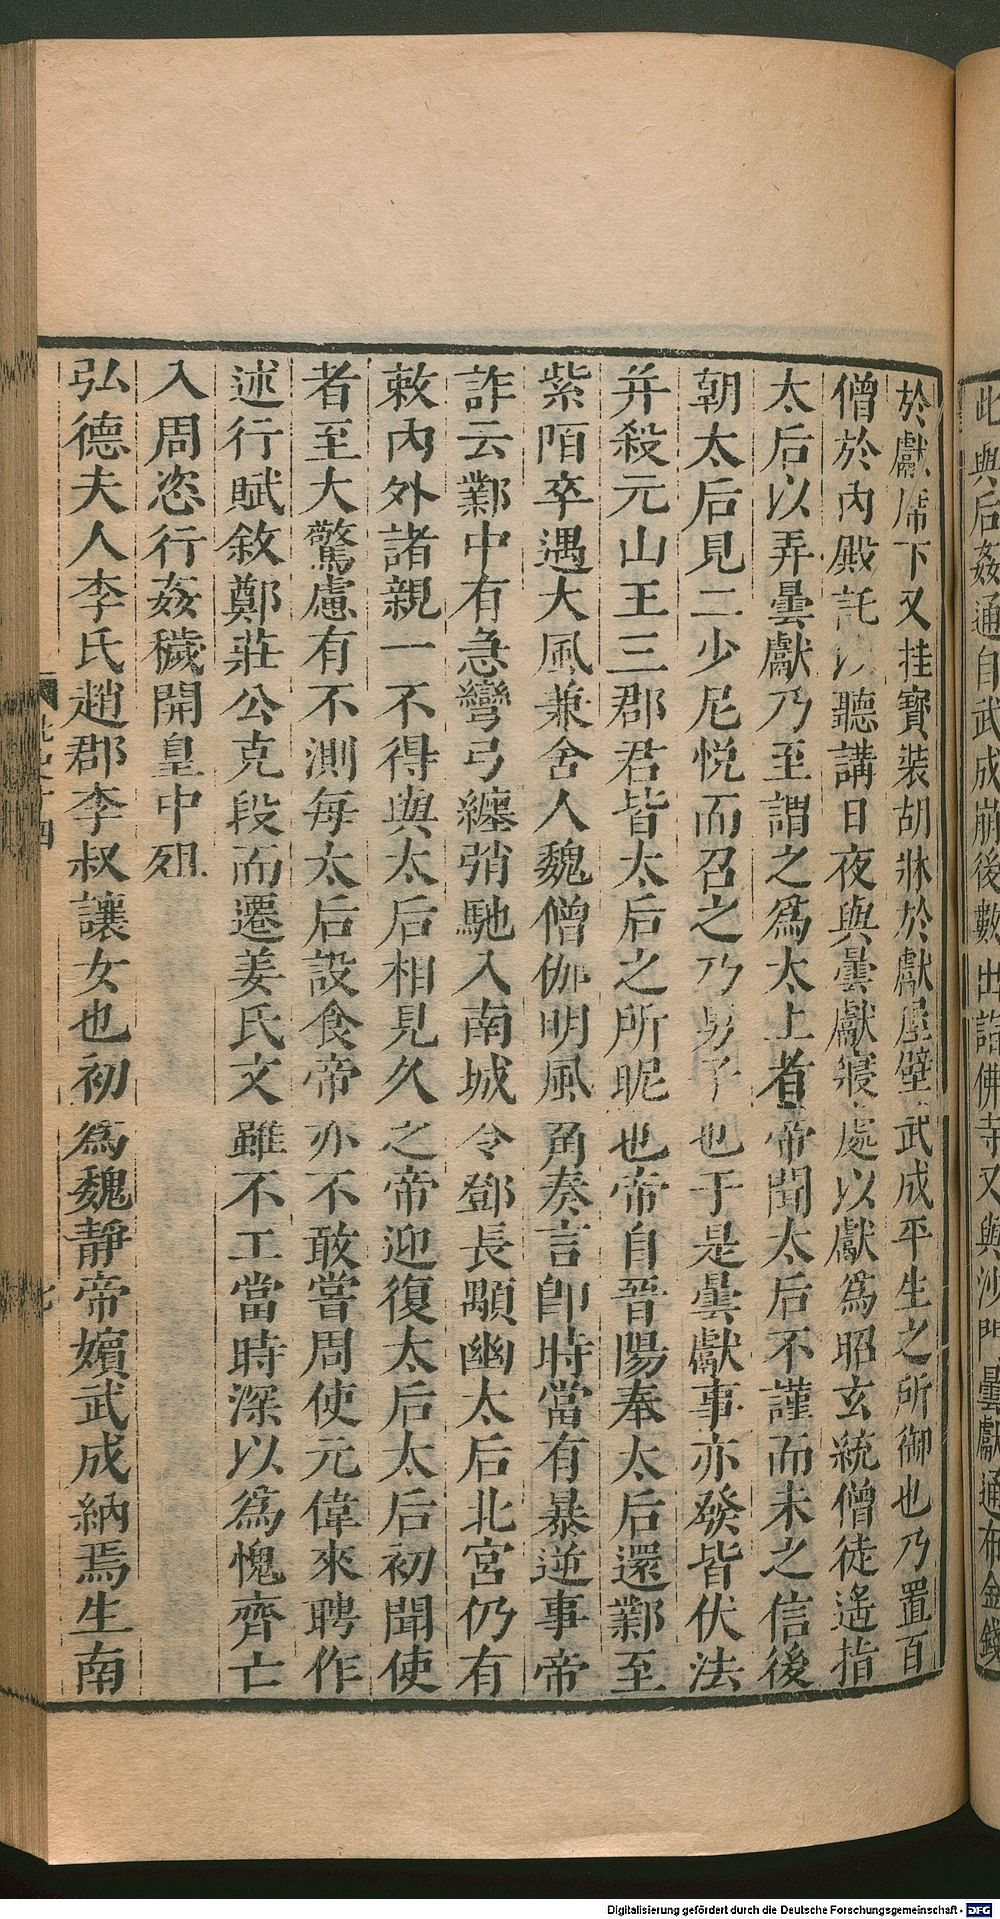 此與后姦通自武成崩後數出詣佛寺又與沙門曇獻通布金錢
於獻席下又挂寶裝胡牀於獻屋壁武成平生之所御也乃置百
僧於內殿託以聽講日夜與曇獻寢處以獻爲昭玄統僧徒遙指
太后以弄曇獻乃至謂之爲太上者帝聞太后不謹而未之信後
朝太后見二少尼悅而召之乃男子也于是曇獻事亦發皆伏法
并殺元山王三郡君皆太后之所昵也帝自晉陽奉太后還鄴至
紫陌卒遇大風兼舍人魏僧伽明風角奏言卽時當有暴逆事帝
詐云鄴中有急彎弓纏弰馳入南城令鄧長顒幽太后北宮仍有
敕內外諸親一不得與太后相見久之帝迎復太后太后初聞使
者至大驚慮有不測每太后設食帝亦不敢嘗周使元偉來聘作
述行賦敘鄭莊公克段而遷姜氏文雖不工當時深以爲愧齊亡
入周恣行姦穢開皇中殂
弘德夫人李氏趙郡李叔讓女也初爲魏靜帝嬪武成納焉生南
Digitalisierung gefördert durch die Deutsche Forschungsgemeinschaft - DFG